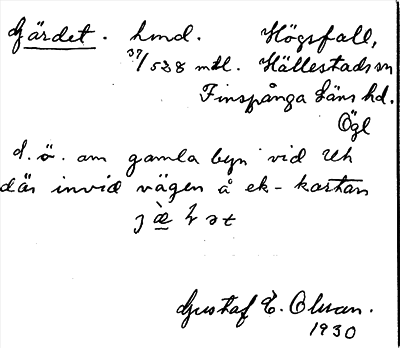 Gärdet. hmd. Högsfall,
37/588 mtl. Hällestads sn
Finspånga läns hd.
Ögl
d. ö. om gamla byn vid Uh
där invid vägen å ek-kartan
Gustaf E. Olsson.
1930